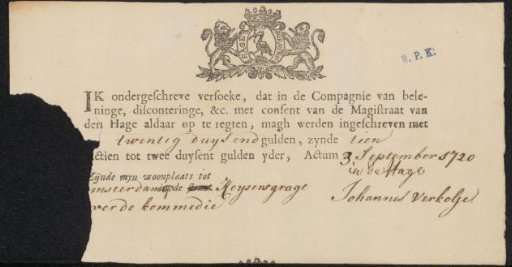 R. P. K.
IK ondergeschreve versoeke, dat in de Compagnie van bele-
ninge, disconteringe, &c. met consent van de Magistraat van
den Hage aldaar op te regten, magh werden ingeschreven met
twentig duysend gulden, zynde tien
Actien tot twee duysent gulden yder, Actum 3 September 1720
in de Hage
Zijnde myn woonplaats tot
Amsterdam op de Keysersgragt
over de kommedie
Johannes Verkolje